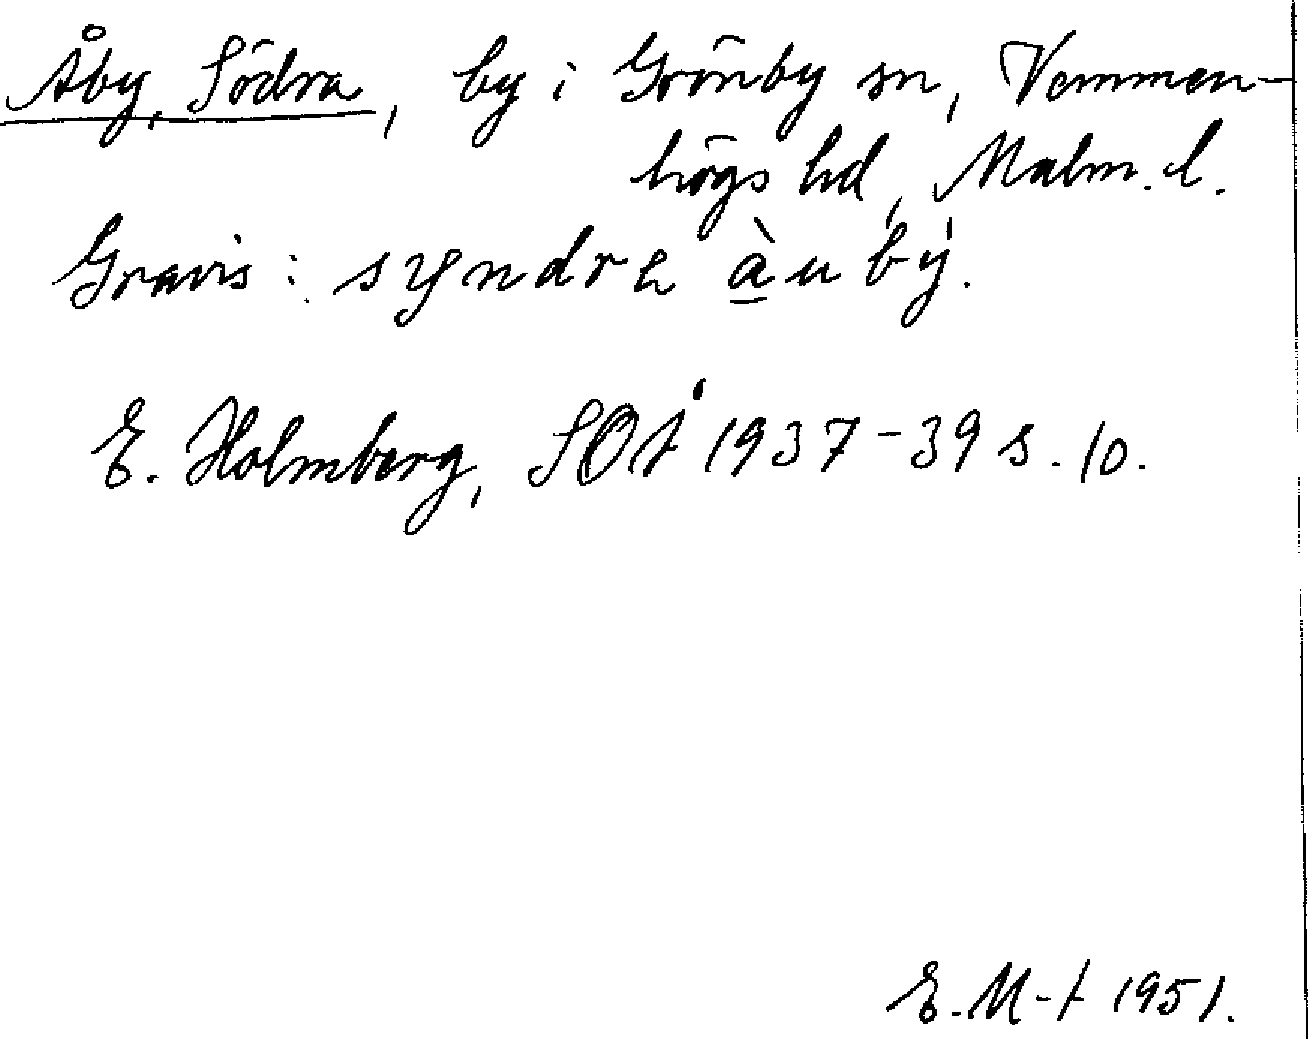 Åby, Södra, by i Grönby sn, Vemmen-
högs hd, Malm. l.
Gravis: syndrə à̠u bý.
E. Holmberg, SOÅ 1937-39 s. 10.
E. M-t 1951.